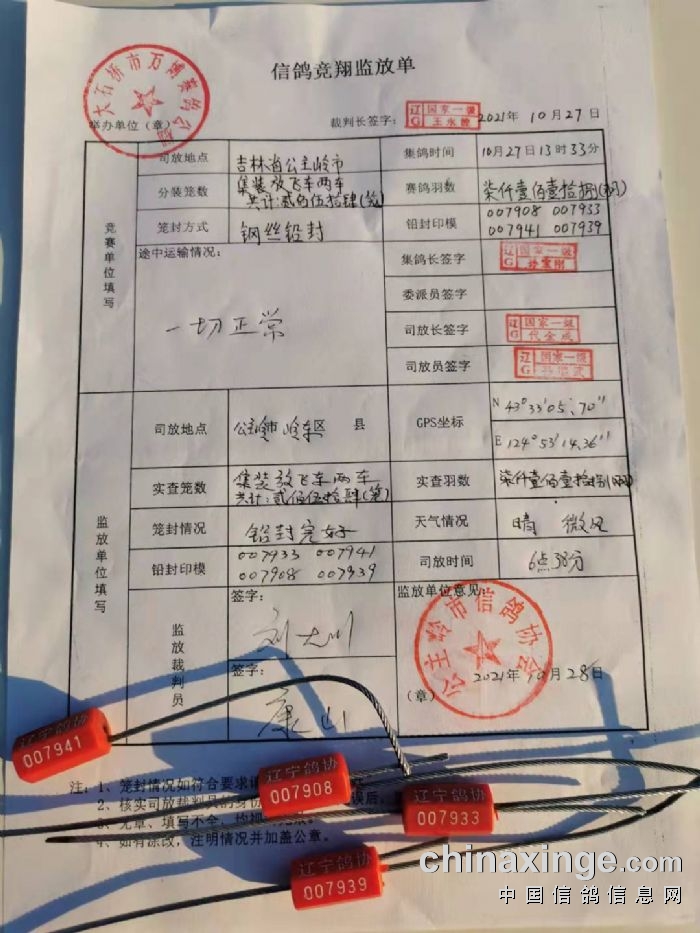 信鸽竞翔监放单
大石桥市万翔赛鸽公棚
举办单位（章）
裁判长签字：
辽G 国家一级
2021年 10月27日
竞赛单位填写
司放地点 吉林省公主岭市 集鸽时间 10月27日13时33分
分装笼数 集装放飞车两车 共计:贰佰伍拾肆(笼) 赛鸽羽数 柒仟壹佰壹拾捌(羽)
笼封方式 钢丝铅封 铅封印模 007908 007933
007941 007939
途中运输情况：
一切正常
集鸽长签字 辽G 国家一级
委派员签字
司放长签字 辽G 国家一级 代金成
司放员签字 辽G 国家一级
监放单位填写
司放地点 公主岭市 岭东区 县 GPS坐标 N 43°33′05.70″
E 124°53′14.36″
实查笼数 集装放飞车两车 共计:贰佰伍拾肆(笼) 实查羽数 柒仟壹佰壹拾捌(羽)
笼封情况 铅封完好 天气情况 晴 微风
铅封印模 007933 007941
007908 007939
司放时间 6点38分
监放裁判员
签字：
刘大川
签字：
康山
监放单位意见：
公主岭市信鸽协会
2021年10月28日
（章）
注：1、笼封情况如符合要求
2、核实司放裁判员的身份
误后，
3、无章、填写不全，均视
4、如有涂改，注明情况并加盖公章。
辽宁鸽协
007941
辽宁鸽协
007908
辽宁鸽协
007933
辽宁鸽协
007939
chinaxinge.com
中国信鸽信息网